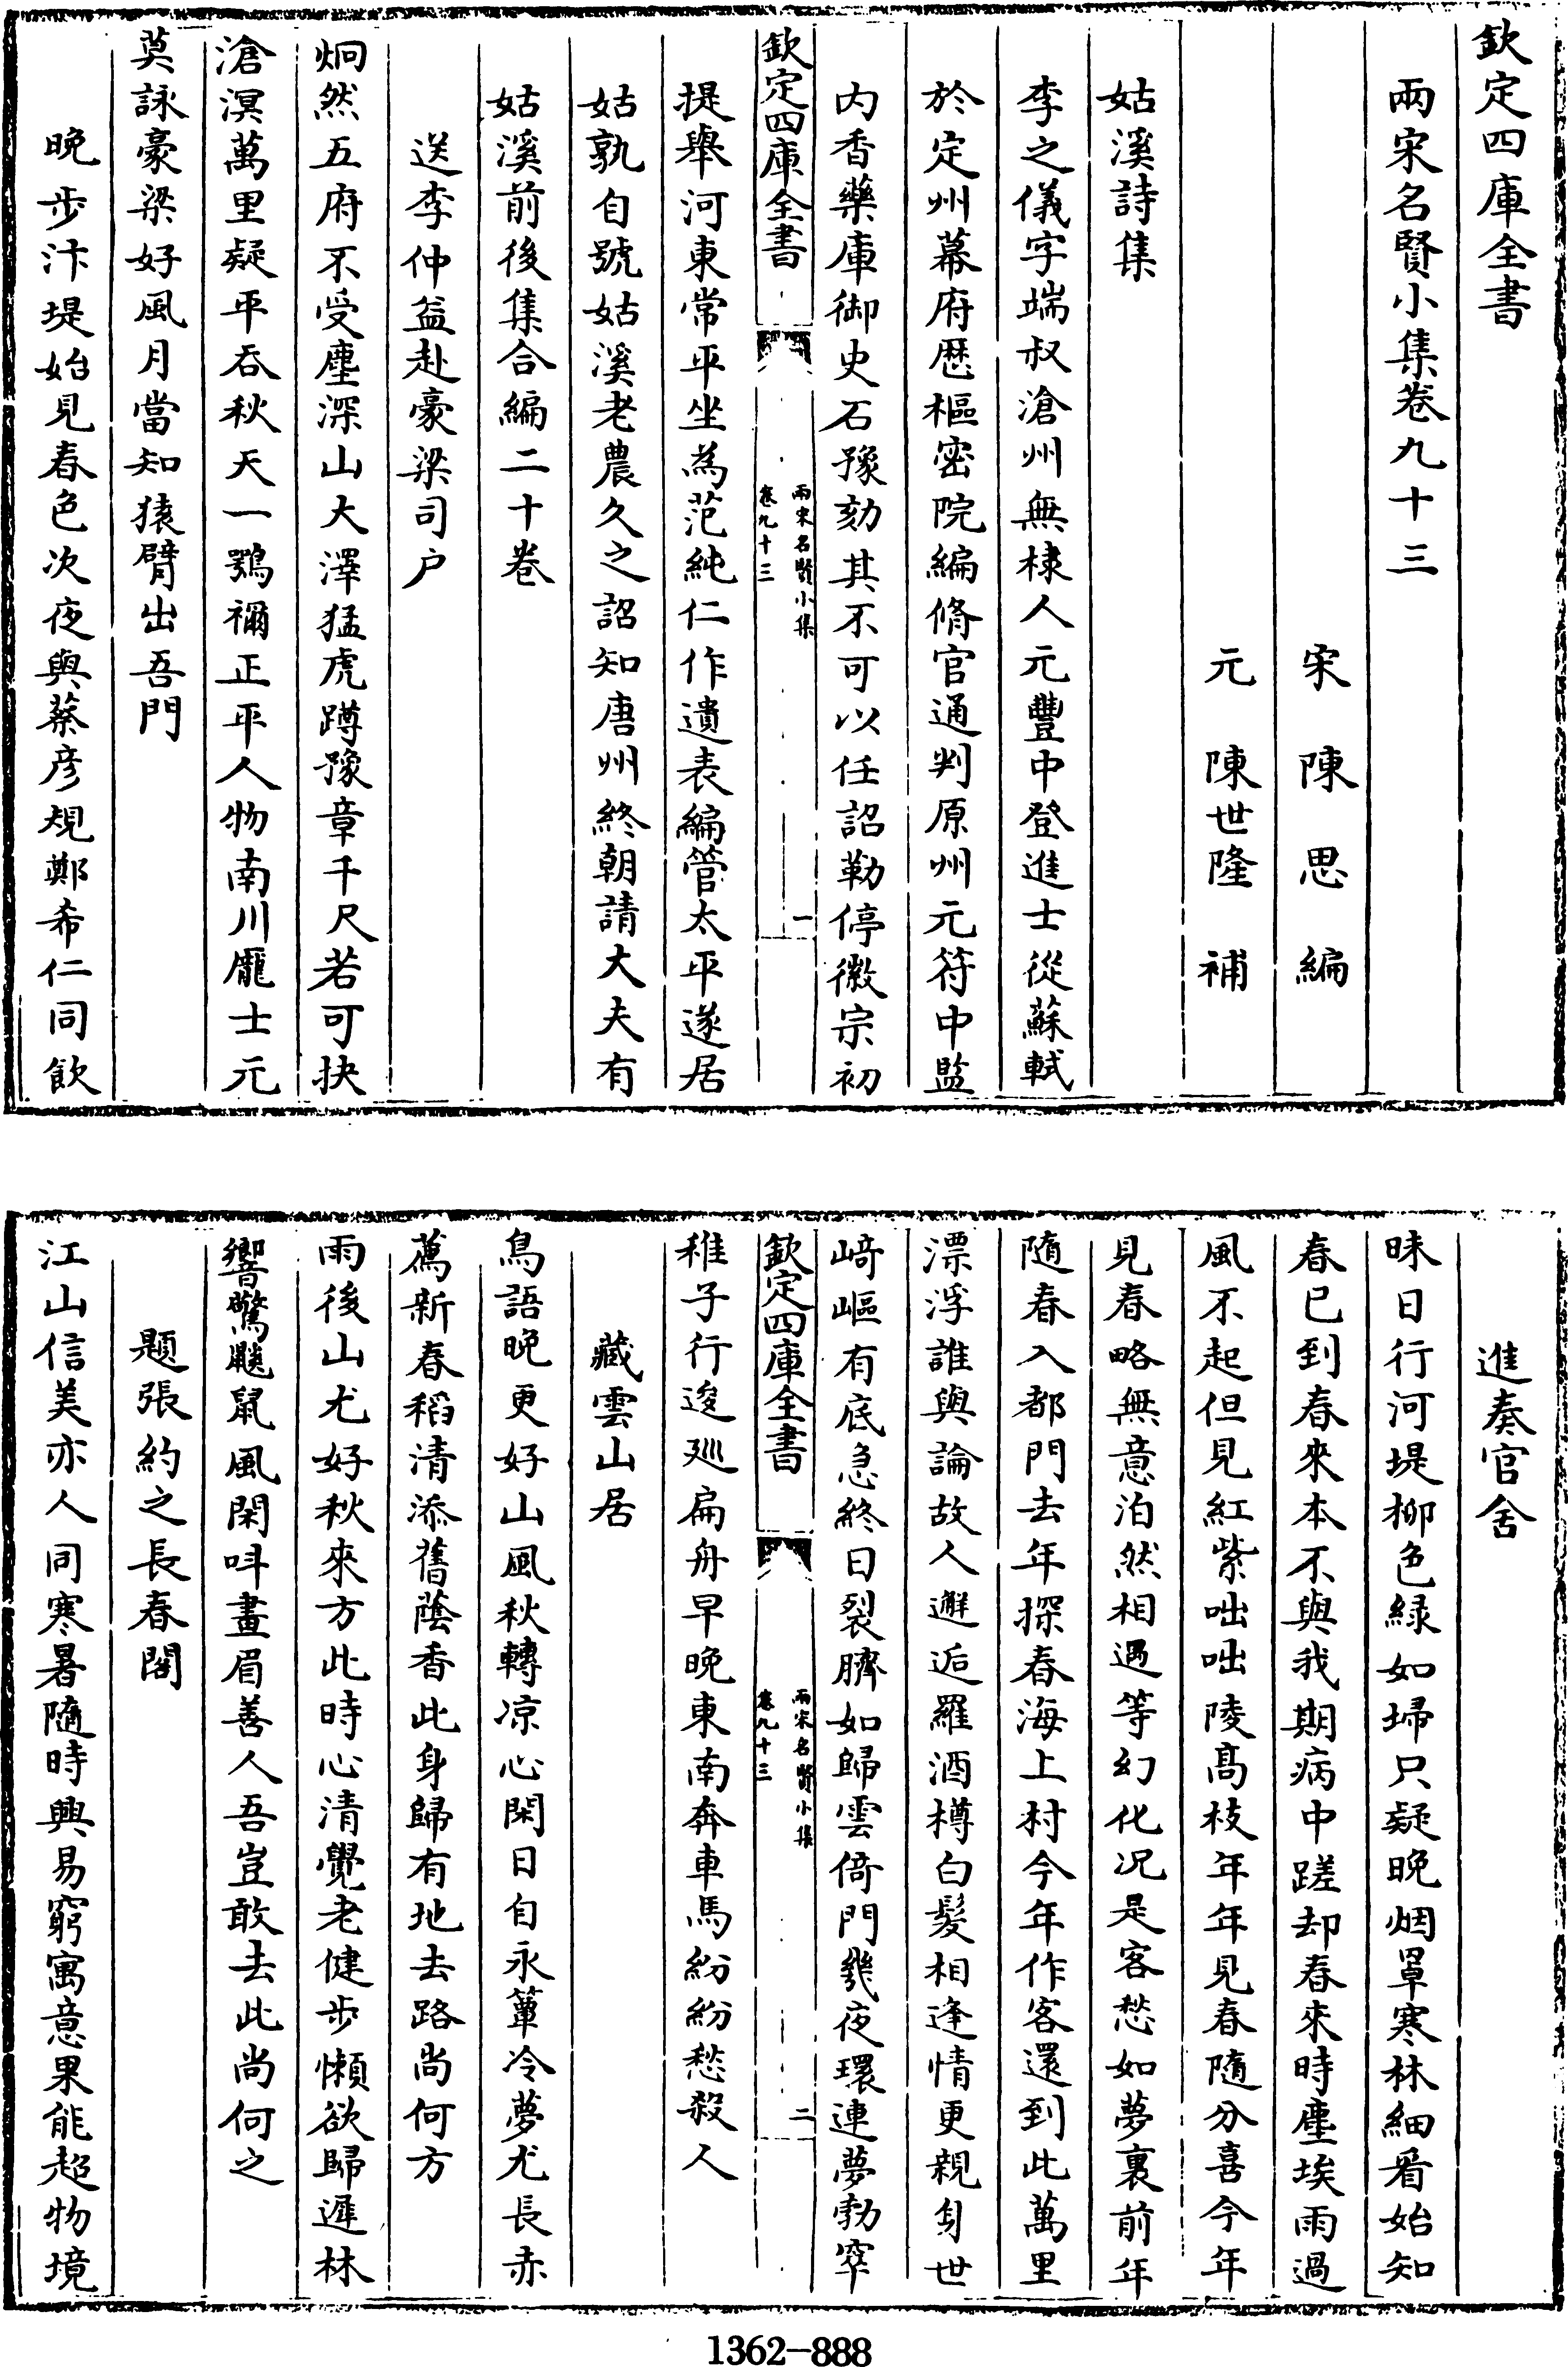 欽定四庫全書
兩宋名賢小集卷九十三
宋 陳思 編
元 陳世隆 補
姑溪詩集
李之儀字端叔滄州無棣人元豐中登進士從蘇軾
於定州幕府歴樞密院編脩官通判原州元符中監
内香藥庫御史石豫劾其不可以任詔勒停徽宗初
欽定四庫全書
兩宋名賢小集
卷九十三
一
提舉河東常平坐為范純仁作遺表編管太平遂居
姑孰自號姑溪老農久之詔知唐州終朝請大夫有
姑溪前後集合編二十卷
送李仲益赴豪梁司户
炯然五府不受塵深山大澤猛虎蹲豫章千尺若可抉
滄溟萬里疑平吞秋天一鶚禰正平人物南川龐士元
莫詠豪梁好風月當知猿臂出吾門
晩步汴堤始見春色次夜與蔡彦規鄭希仁同飲
進奏官舍
昧日行河堤柳色緑如埽只疑晩烟罩寒林細看始知
春已到春來本不與我期病中蹉却春來時塵埃雨過
風不起但見紅紫咄咄陵髙枝年年見春隨分喜今年
見春略無意泊然相遇等幻化况是客愁如夢裏前年
隨春入都門去年探春海上村今年作客還到此萬里
漂浮誰與論故人邂逅羅酒樽白髪相逢情更親身世
﨑嶇有底急終日裂臍如歸雲倚門幾夜環連夢勃窣
欽定四庫全書
兩宋名賢小集
卷九十三
二
稚子行逡廵扁舟早晩東南奔車馬紛紛愁殺人
藏雲山居
鳥語晩更好山風秋轉凉心閑日自永簟冷夢尤長赤
薦新舂稻清添舊蔭香此身歸有地去路尚何方
雨後山尤好秋來方此時心清覺老健步懶欲歸遲林
響驚鼯鼠風閑呌畫眉善人吾豈敢去此尚何之
題張約之長春閣
江山信美亦人同寒暑隨時興易窮寓意果能超物境
1362-888